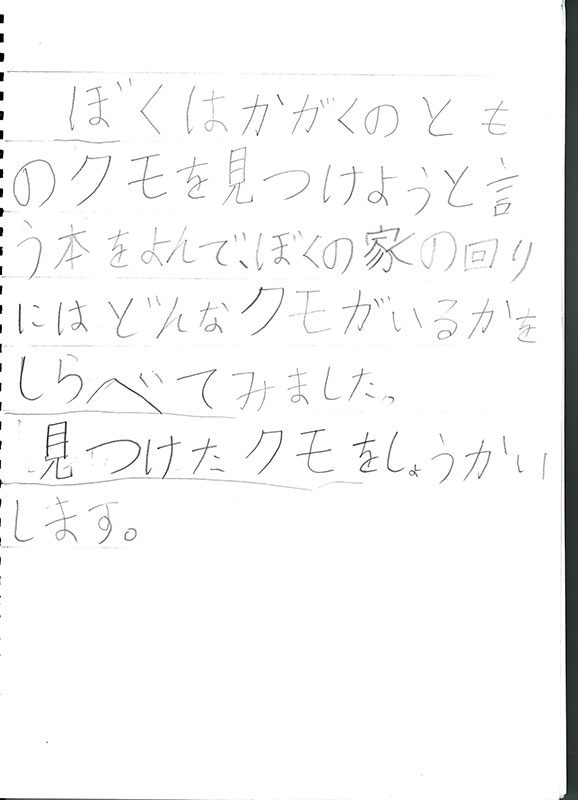 ぼくはかがくのとも
のクモを見つけようと言
う本をよんで、ぼくの家の回り
にはどんなクモがいるかを
しらべてみました。
見つけたクモをしょうかい
します。